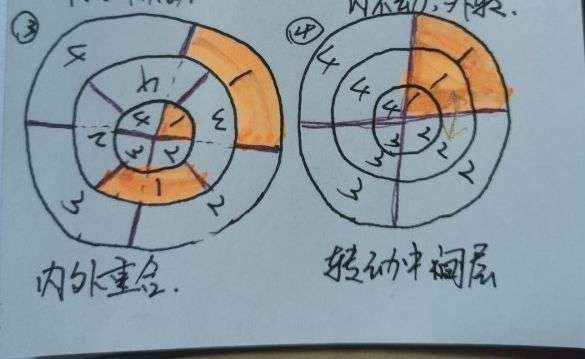 内不动,外转.
③
4
4
1
4
1
3
2
3
2
1
3
2
内外重合.
④
4
1
4
1
4
1
2
3
2
3
2
3
转动中间层